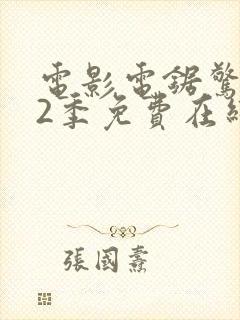 電影電鋸驚
2季免費在線
張國燾